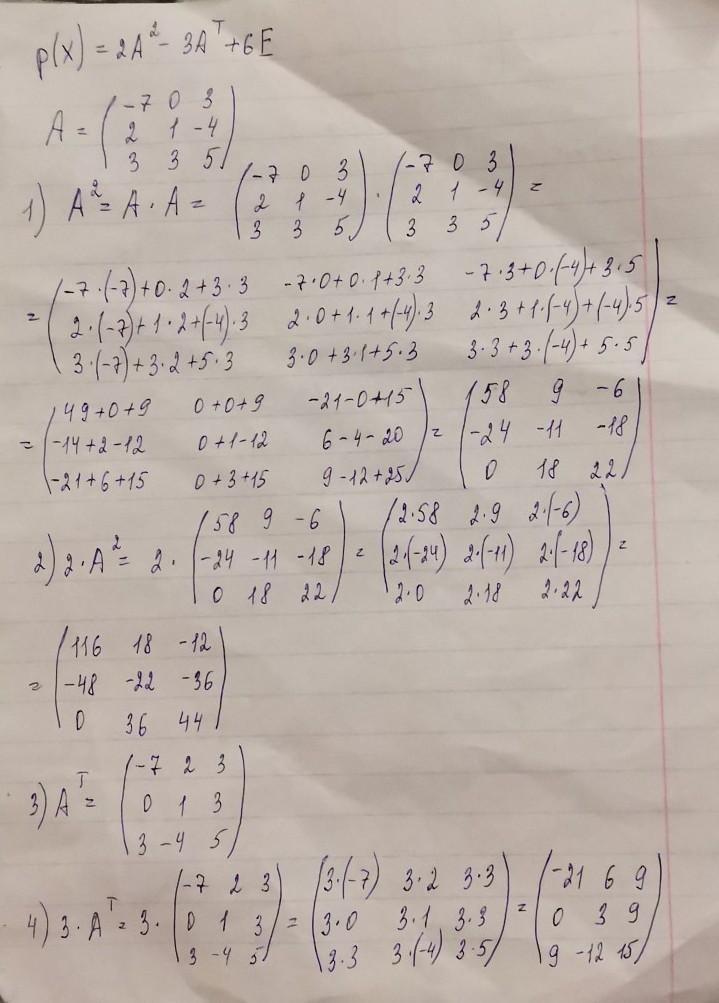 p(X) = 2A² - 3Aᵀ + 6E
A = (-7 0 3
2 1 -4
3 3 5)
1) A² = A · A = (-7 0 3
2 1 -4
3 3 5) · (-7 0 3
2 1 -4
3 3 5) =
= (-7·(-7)+0·2+3·3 -7·0+0·1+3·3 -7·3+0·(-4)+3·5
2·(-7)+1·2+(-4)·3 2·0+1·1+(-4)·3 2·3+1·(-4)+(-4)·5
3·(-7)+3·2+5·3 3·0+3·1+5·3 3·3+3·(-4)+5·5) =
= (49+0+9 0+0+9 -21-0+15
-14+2-12 0+1-12 6-4-20
-21+6+15 0+3+15 9-12+25) = (58 9 -6
-24 -11 -18
0 18 22)
2) 2·A² = 2 · (58 9 -6
-24 -11 -18
0 18 22) = (2·58 2·9 2·(-6)
2·(-24) 2·(-11) 2·(-18)
2·0 2·18 2·22) =
= (116 18 -12
-48 -22 -36
0 36 44)
3) Aᵀ = (-7 2 3
0 1 3
3 -4 5)
4) 3·Aᵀ = 3 · (-7 2 3
0 1 3
3 -4 5) = (3·(-7) 3·2 3·3
3·0 3·1 3·3
3·3 3·(-4) 3·5) = (-21 6 9
0 3 9
9 -12 15)